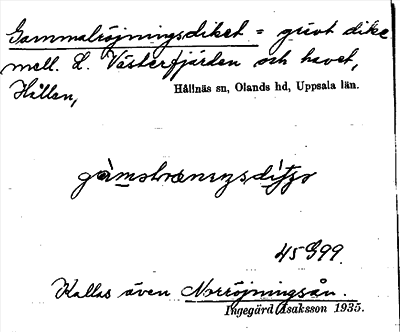 Gammalröjningsdiket = grävt dike
mell. L. Västerfjärden och havet,
Hållen,
Hållnäs sn, Olands hd, Uppsala län.
45 G99.
Kallas även Norröjningsån.
Ingegärd Isaksson 1935.